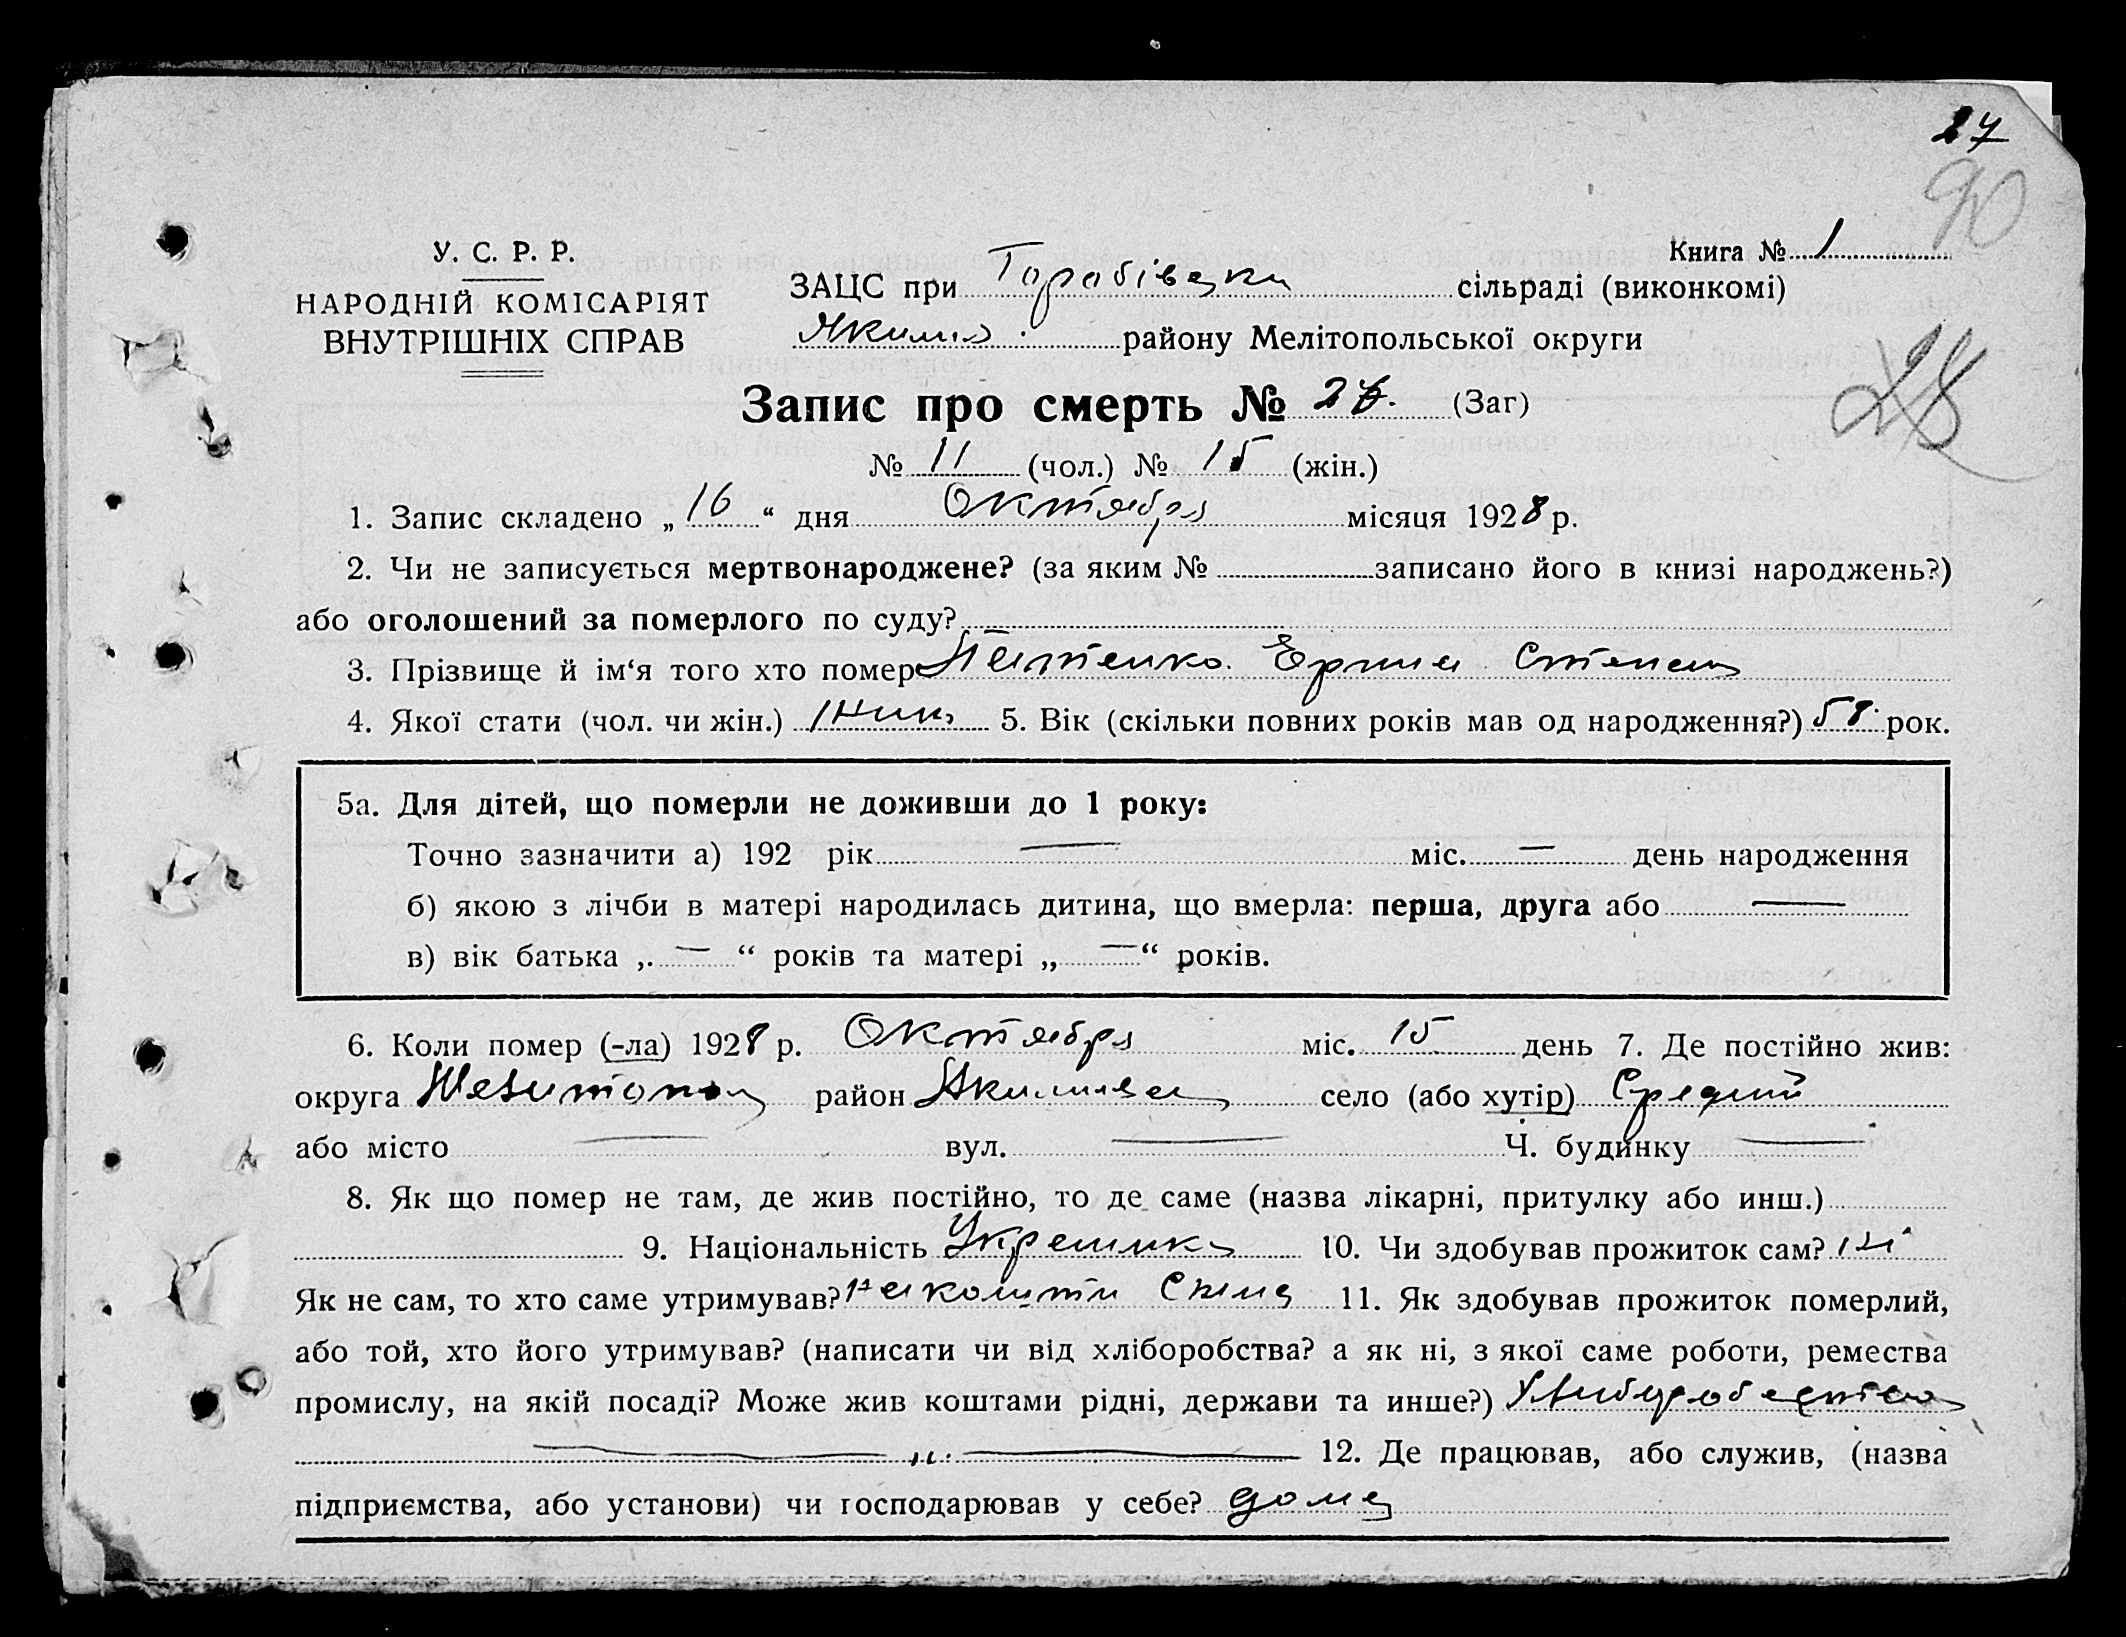 27
90
У. С. Р. Р.
Книга № 1
НАРОДНІЙ КОМІСАРІЯТ
ЗАЦС при сільраді (виконкомі)
ВНУТРІШНІХ СПРАВ
Яким. району Мелітопольської округи
28
Запис про смерть № (Заг)
№ 11 (чол.) № 15 (жін.)
1. Запис складено „ 16 “ дня Октября місяця 1928 р.
2. Чи не записується мертвонароджене? (за яким № записано його в книзі народжень?)
або оголошений за померлого по суду? —
3. Прізвище й ім‘я того хто помер
4. Якої стати (чол. чи жін.) 5. Вік (скільки повних років мав од народження?) 58 рок.
5а. Для дітей, що померли не доживши до 1 року:
Точно зазначити а) 192 рік — міс. — день народження
б) якою з лічби в матері народилась дитина, що вмерла: перша, друга або —
в) вік батька „ — “ років та матері „ — “ років.
6. Коли помер (-ла) 1928 р. Октября міс. 15 день 7. Де постійно жив:
округа район село (або хутір) Средний
або місто — вул. — Ч. будинку —
8. Як що помер не там, де жив постійно, то де саме (назва лікарні, притулку або инш.)
9. Національність 10. Чи здобував прожиток сам? ні
Як не сам, то хто саме утримував? 11. Як здобував прожиток померлий,
або той, хто його утримував? (написати чи від хліборобства? а як ні, з якої саме роботи, ремества
промислу, на якій посаді? Може жив коштами рідні, держави та инше?)
— „ — 12. Де працював, або служив, (назва
підприємства, або установи) чи господарював у себе? дома